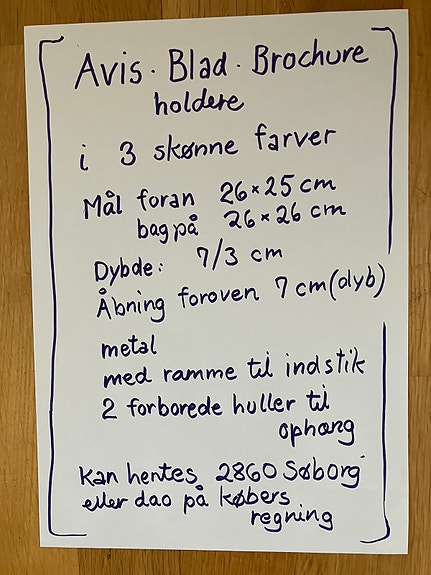 Avis · Blad · Brochure
holdere
i 3 skønne farver
Mål foran 26×25 cm
bagpå 26×26 cm
Dybde: 7/3 cm
Åbning foroven 7 cm (dyb)
metal
med ramme til indstik
2 forborede huller til
ophæng
Kan hentes 2860 Søborg
eller dao på købers
regning